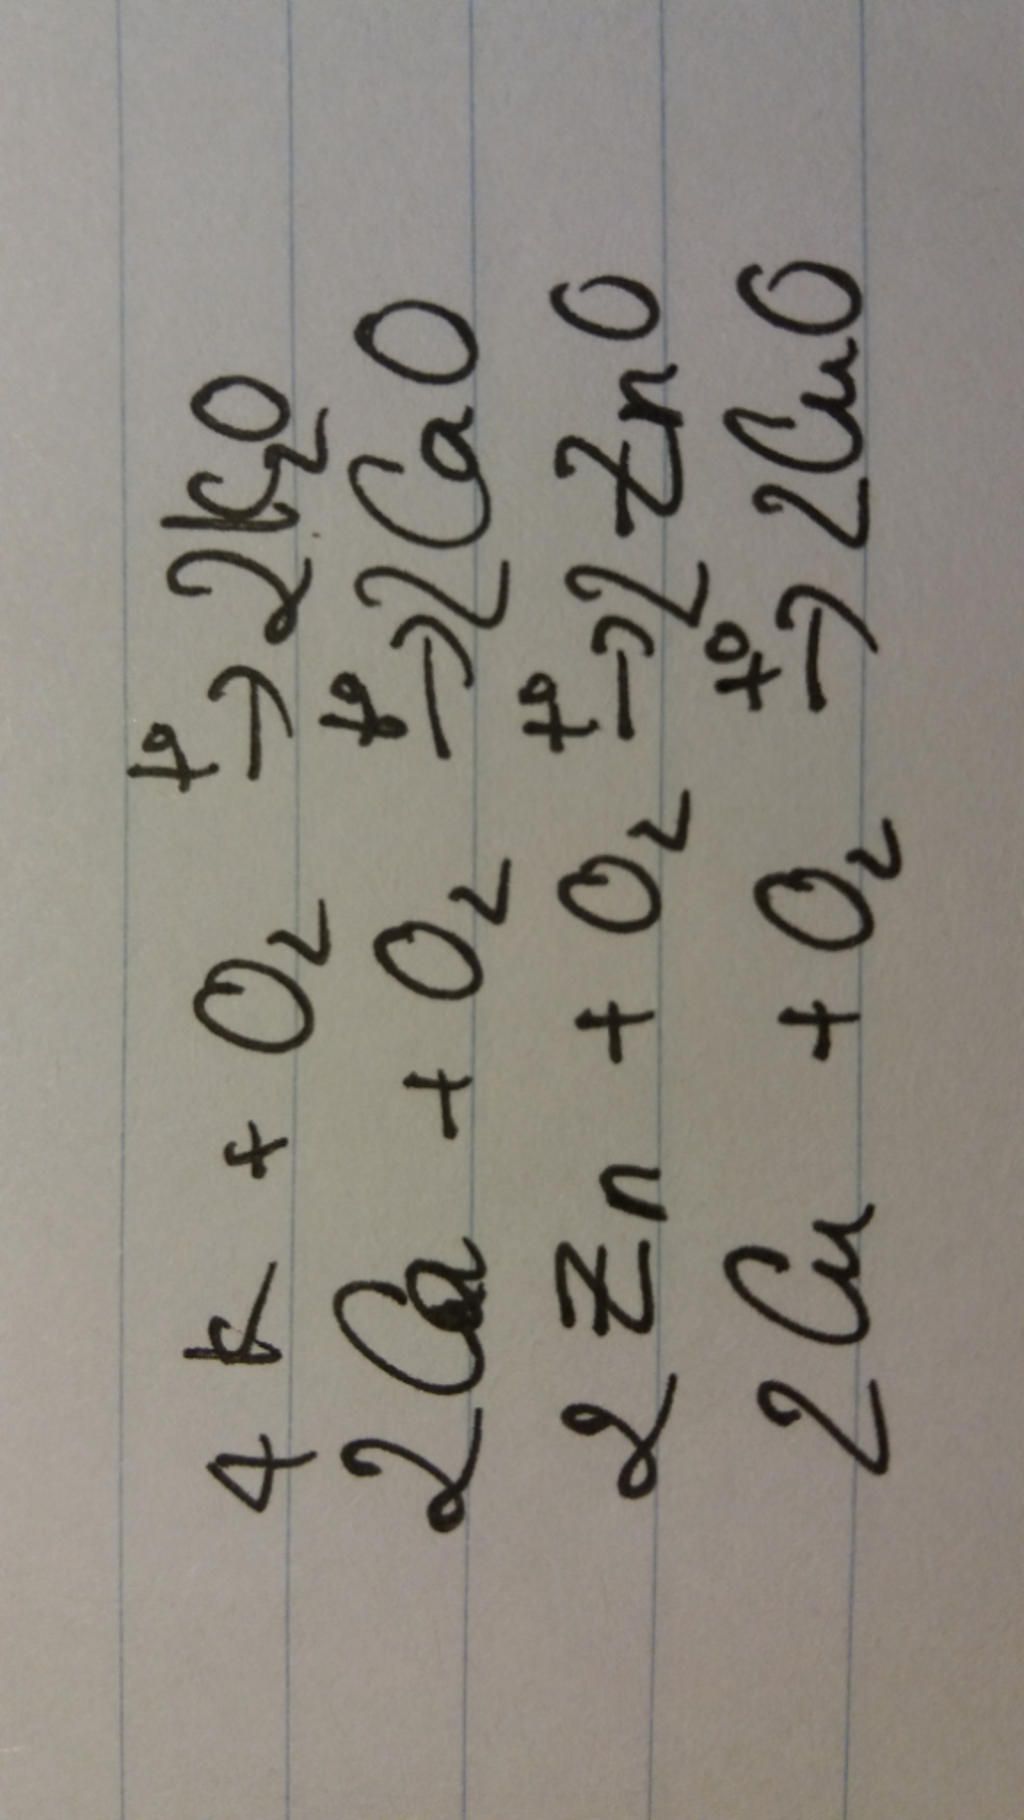 4K + O₂ t°→ 2K₂O
2Ca + O₂ t°→ 2CaO
2Zn + O₂ t°→ 2ZnO
2Cu + O₂ t°→ 2CuO